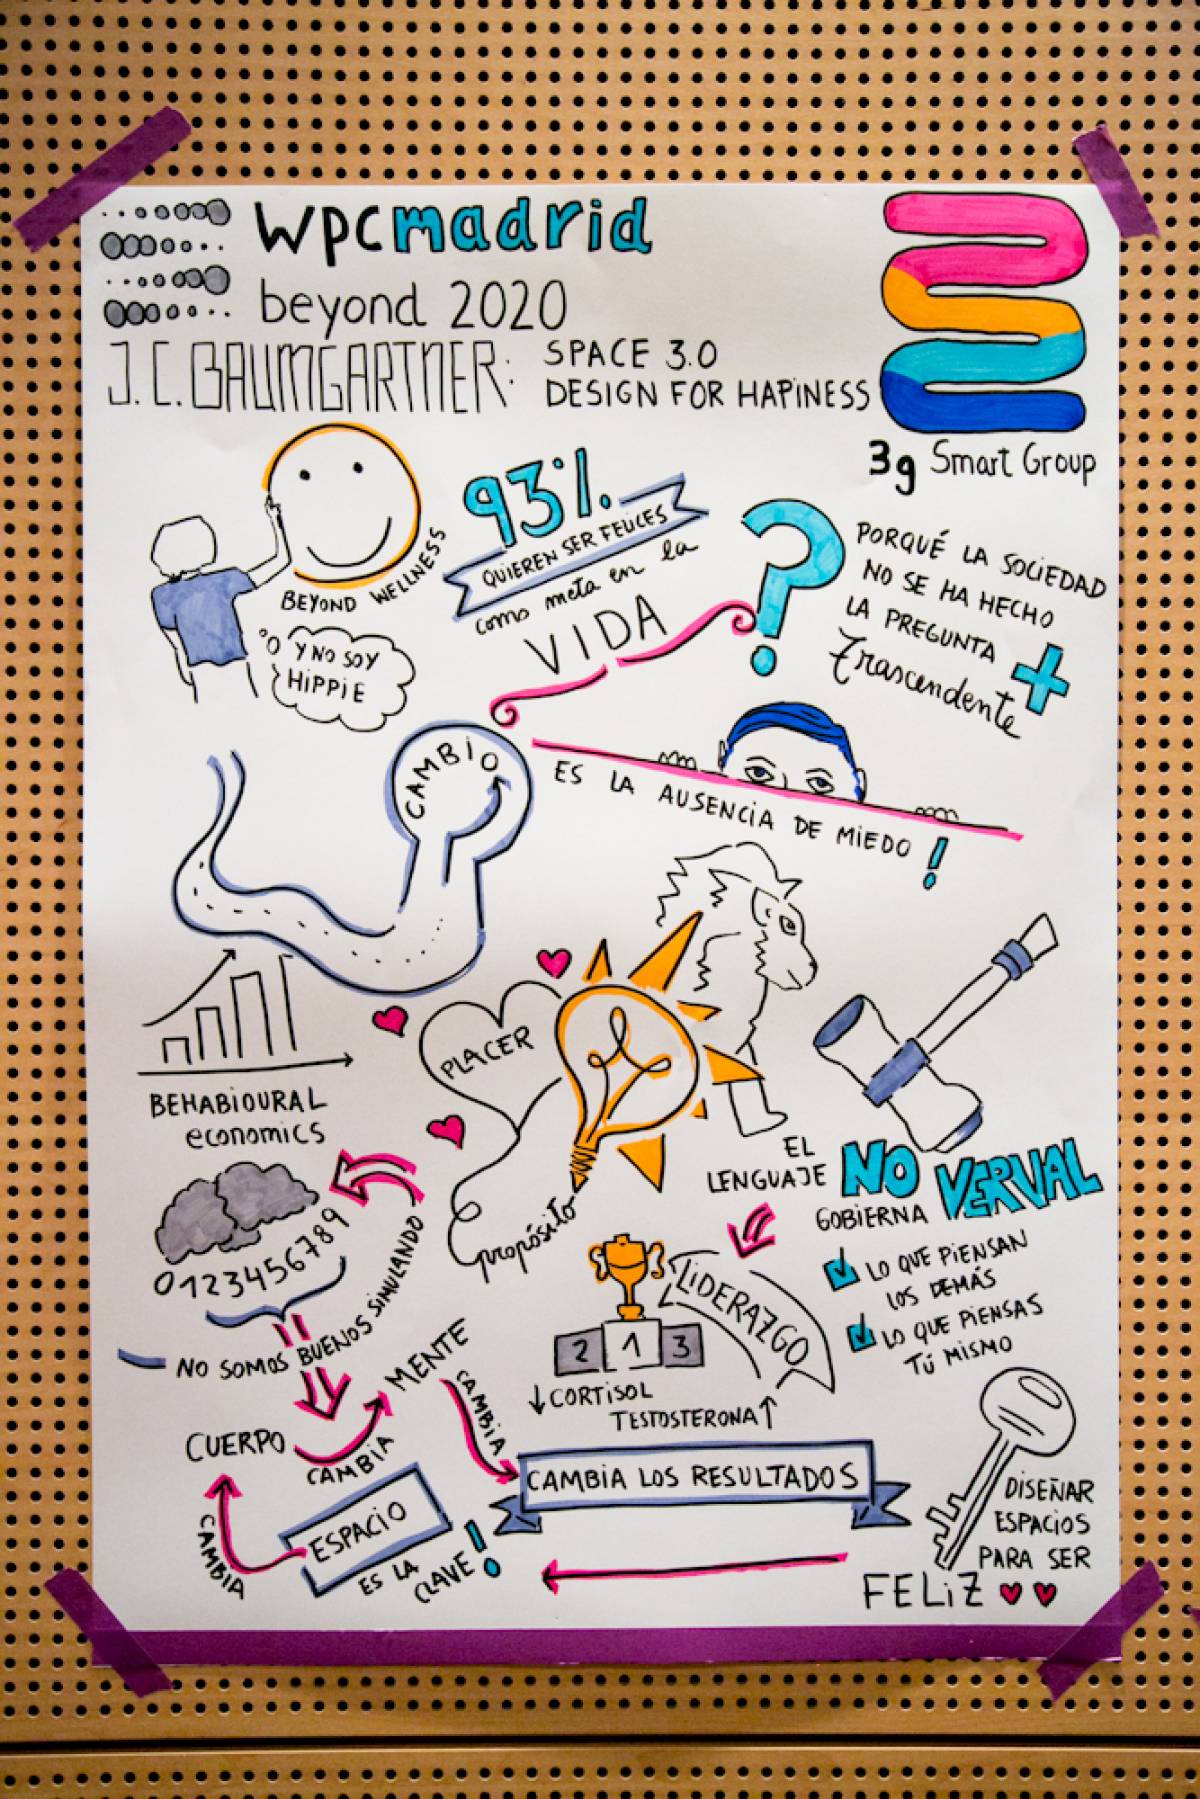 wpcmadrid
beyond 2020
J.C. BAUMGARTNER:
SPACE 3.0
DESIGN FOR HAPINESS
3g Smart Group
BEYOND WELLNESS
Y NO SOY
HIPPIE
93%
QUIEREN SER FELICES
como meta en la
VIDA
?
PORQUÉ LA SOCIEDAD
NO SE HA HECHO
LA PREGUNTA
+
Trascendente
CAMBIO
ES LA AUSENCIA DE MIEDO!
BEHABIOURAL
economics
PLACER
propósito
EL
LENGUAJE NO VERVAL
GOBIERNA
LO QUE PIENSAN
LOS DEMÁS
LO QUE PIENSAS
TÚ MISMO
0123456789
NO SOMOS BUENOS SIMULANDO
LIDERAZGO
2 1 3
↓CORTISOL
TESTOSTERONA↑
CUERPO
CAMBIA
MENTE
CAMBIA
CAMBIA LOS RESULTADOS
CAMBIA
ESPACIO
ES LA
CLAVE!
DISEÑAR
ESPACIOS
PARA SER
FELIZ